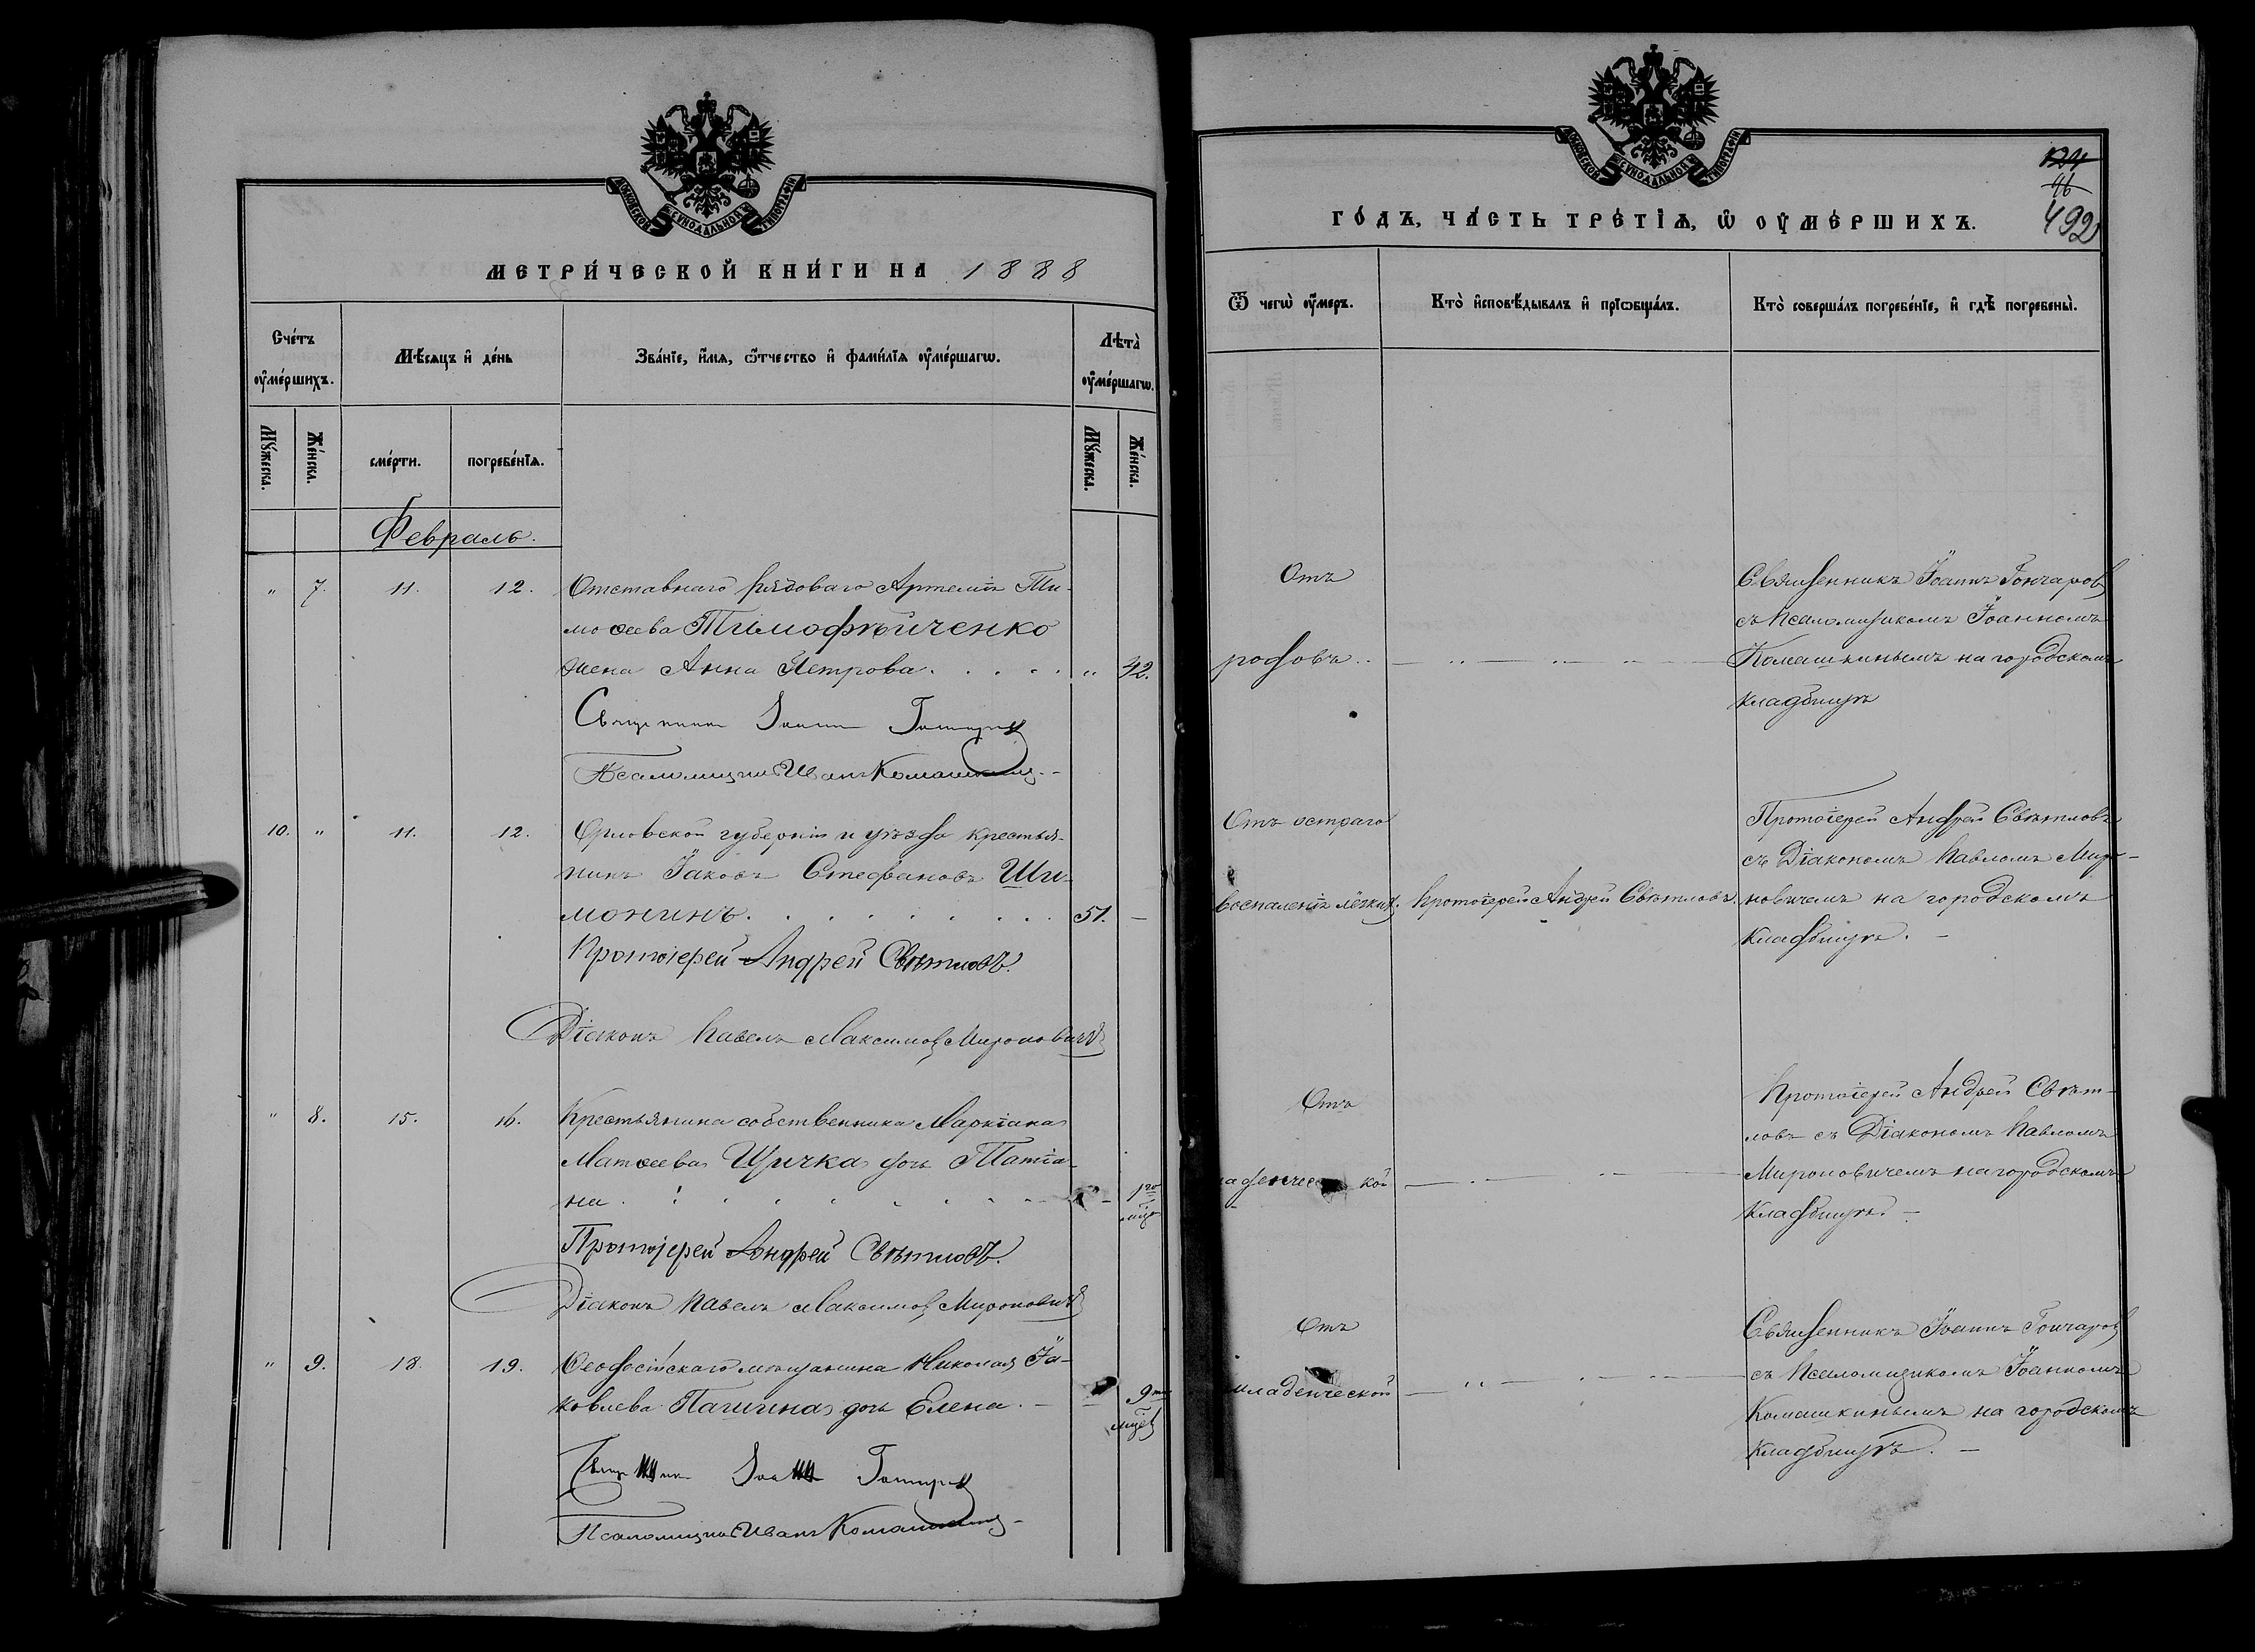 МОСКОВСКОЙ СѴНОДАЛЬНОЙ ТИПОГРАФІИ
МЕТРИ́ЧЕСКОЙ КНИ́ГИ НА 1888
Сче́тъ ᲂу҆ме́ршихъ.
Мѣ́сяцъ и҆ де́нь
Зва́нїе, и҆́мѧ, ѻ҆́тчество и҆ фами́лїѧ ᲂу҆ме́ршагѡ.
Лѣта̀ ᲂу҆ме́ршагѡ.
Мꙋ́жеска.
Же́нска.
сме́рти.
погребе́нїѧ.
Мꙋ́жеска.
Же́нска.
Февраль.
" 7. 11. 12. Отставнаго рядоваго Артемія Ти-
моѳеева Тимофѣйченко
жена Анна Петрова. . . . . " 42.
Священникъ Іоаннъ Гончаровъ
Псаломщикъ Иванъ Комашкинъ.
10. " 11. 12. Орловской губерніи и уѣзда крестья-
нинъ Іаковъ Стефановъ Ши-
монинъ. . . . . . . . . 51. —
Протоіерей Андрей Свѣтловъ.
Діаконъ Павелъ Максимовъ Мироновичъ
" 8. 15. 16. Крестьянина собственника Маркіана
Матѳеева Щичка дочь Татіа-
на . . . . . . . . . 1го
Протоіерей Андрей Свѣтловъ.
Діаконъ Павелъ Максимовъ Мироновичъ
" 9. 18. 19. Ѳеодосійскаго мѣщанина Николая Іа-
ковлева Пагигина дочь Елена. — 9ти
мцев
Священникъ Іоаннъ Гончаровъ
Псаломщикъ Иванъ Комашкинъ
МОСКОВСКОЙ СѴНОДАЛЬНОЙ ТИПОГРАФІИ
46
492
ГО́ДЪ, ЧА́СТЬ ТРЕ́ТЇѦ, Ѡ҆ ОУ҆МЕ́РШИХЪ.
Ѿ чегѡ̀ ᲂу҆́меръ.
Кто̀ и҆сповѣ́дывалъ и҆ прїѡбща́лъ.
Кто̀ соверша́лъ погребе́нїе, и҆ гдѣ̀ погребены̀.
Отъ
родовъ
Священникъ Іоаннъ Гончаровъ
съ Псаломщикомъ Іоанномъ
Комашкинымъ на городскомъ
кладбищѣ
Отъ остраго
воспаленія легкихъ
Протоіерей Андрей Свѣтловъ.
Протоіерей Андрей Свѣтловъ
съ Діакономъ Павломъ Миро-
новичемъ на городскомъ
кладбищѣ. —
Отъ
Протоіерей Андрей Свѣт-
ловъ съ Діакономъ Павломъ
Мироновичемъ на городскомъ
кладбищѣ. —
Отъ
младенческой
Священникъ Іоаннъ Гончаровъ
съ Псаломщикомъ Іоанномъ
Комашкинымъ на городскомъ
кладбищѣ. —